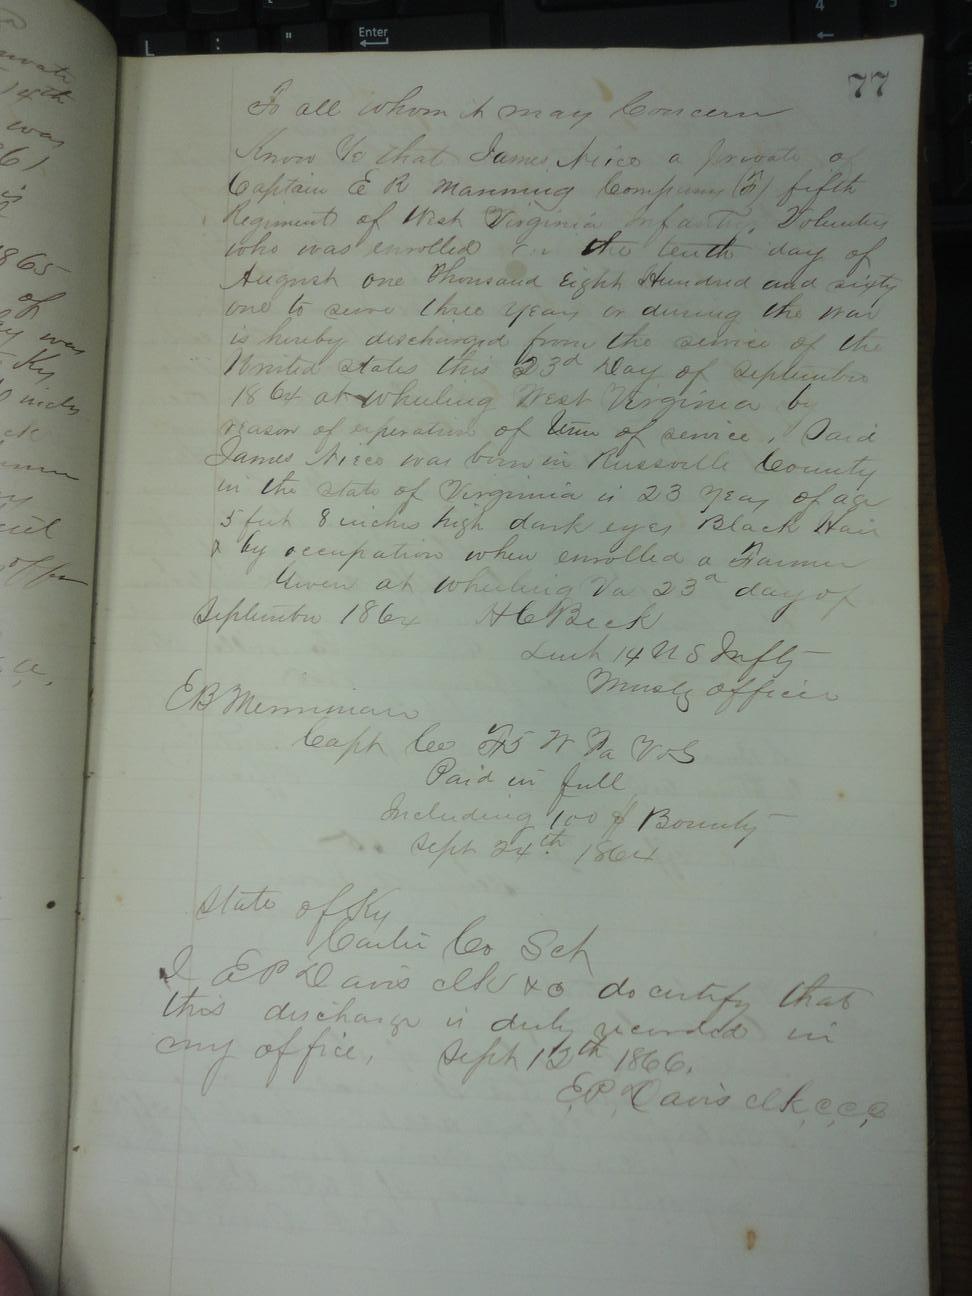 77
To all whom it may Concern
Know Ye that James Niece a private of
Captain E R Manning Company (F) fifth
Regiment of West Virginia Infantry Volunteers
who was enrolled on the tenth day of
August one Thousand Eight Hundred and sixty
one to serve three years or during the war
is hereby discharged from the service of the
United states this 23d Day of september
1864 at wheeling West Virginia by
reason of experation of term of service, Said
James Niece was born in Russville County
in the state of Virginia is 23 years of age
5 feet 8 inches high dark eyes Black Hair
& by occupation when enrolled a Farmer
Given at wheeling Va 23d day of
September 1864 H C Beck
Lieut 14 U S Infty
Mustg officer
E B Merriman
Capt Co F 5 W Va Vols
Paid in full
Including 100 $ Bounty
Sept 24th 1864
State of Ky
Carter Co Sct
I E P Davis clk &c do certify that
this discharge is duly recorded in
my office, Sept 12th 1866.
E. P. Davis clk, c, c, c
private
14th
was
61
is
1865
of
was
Ky
inches